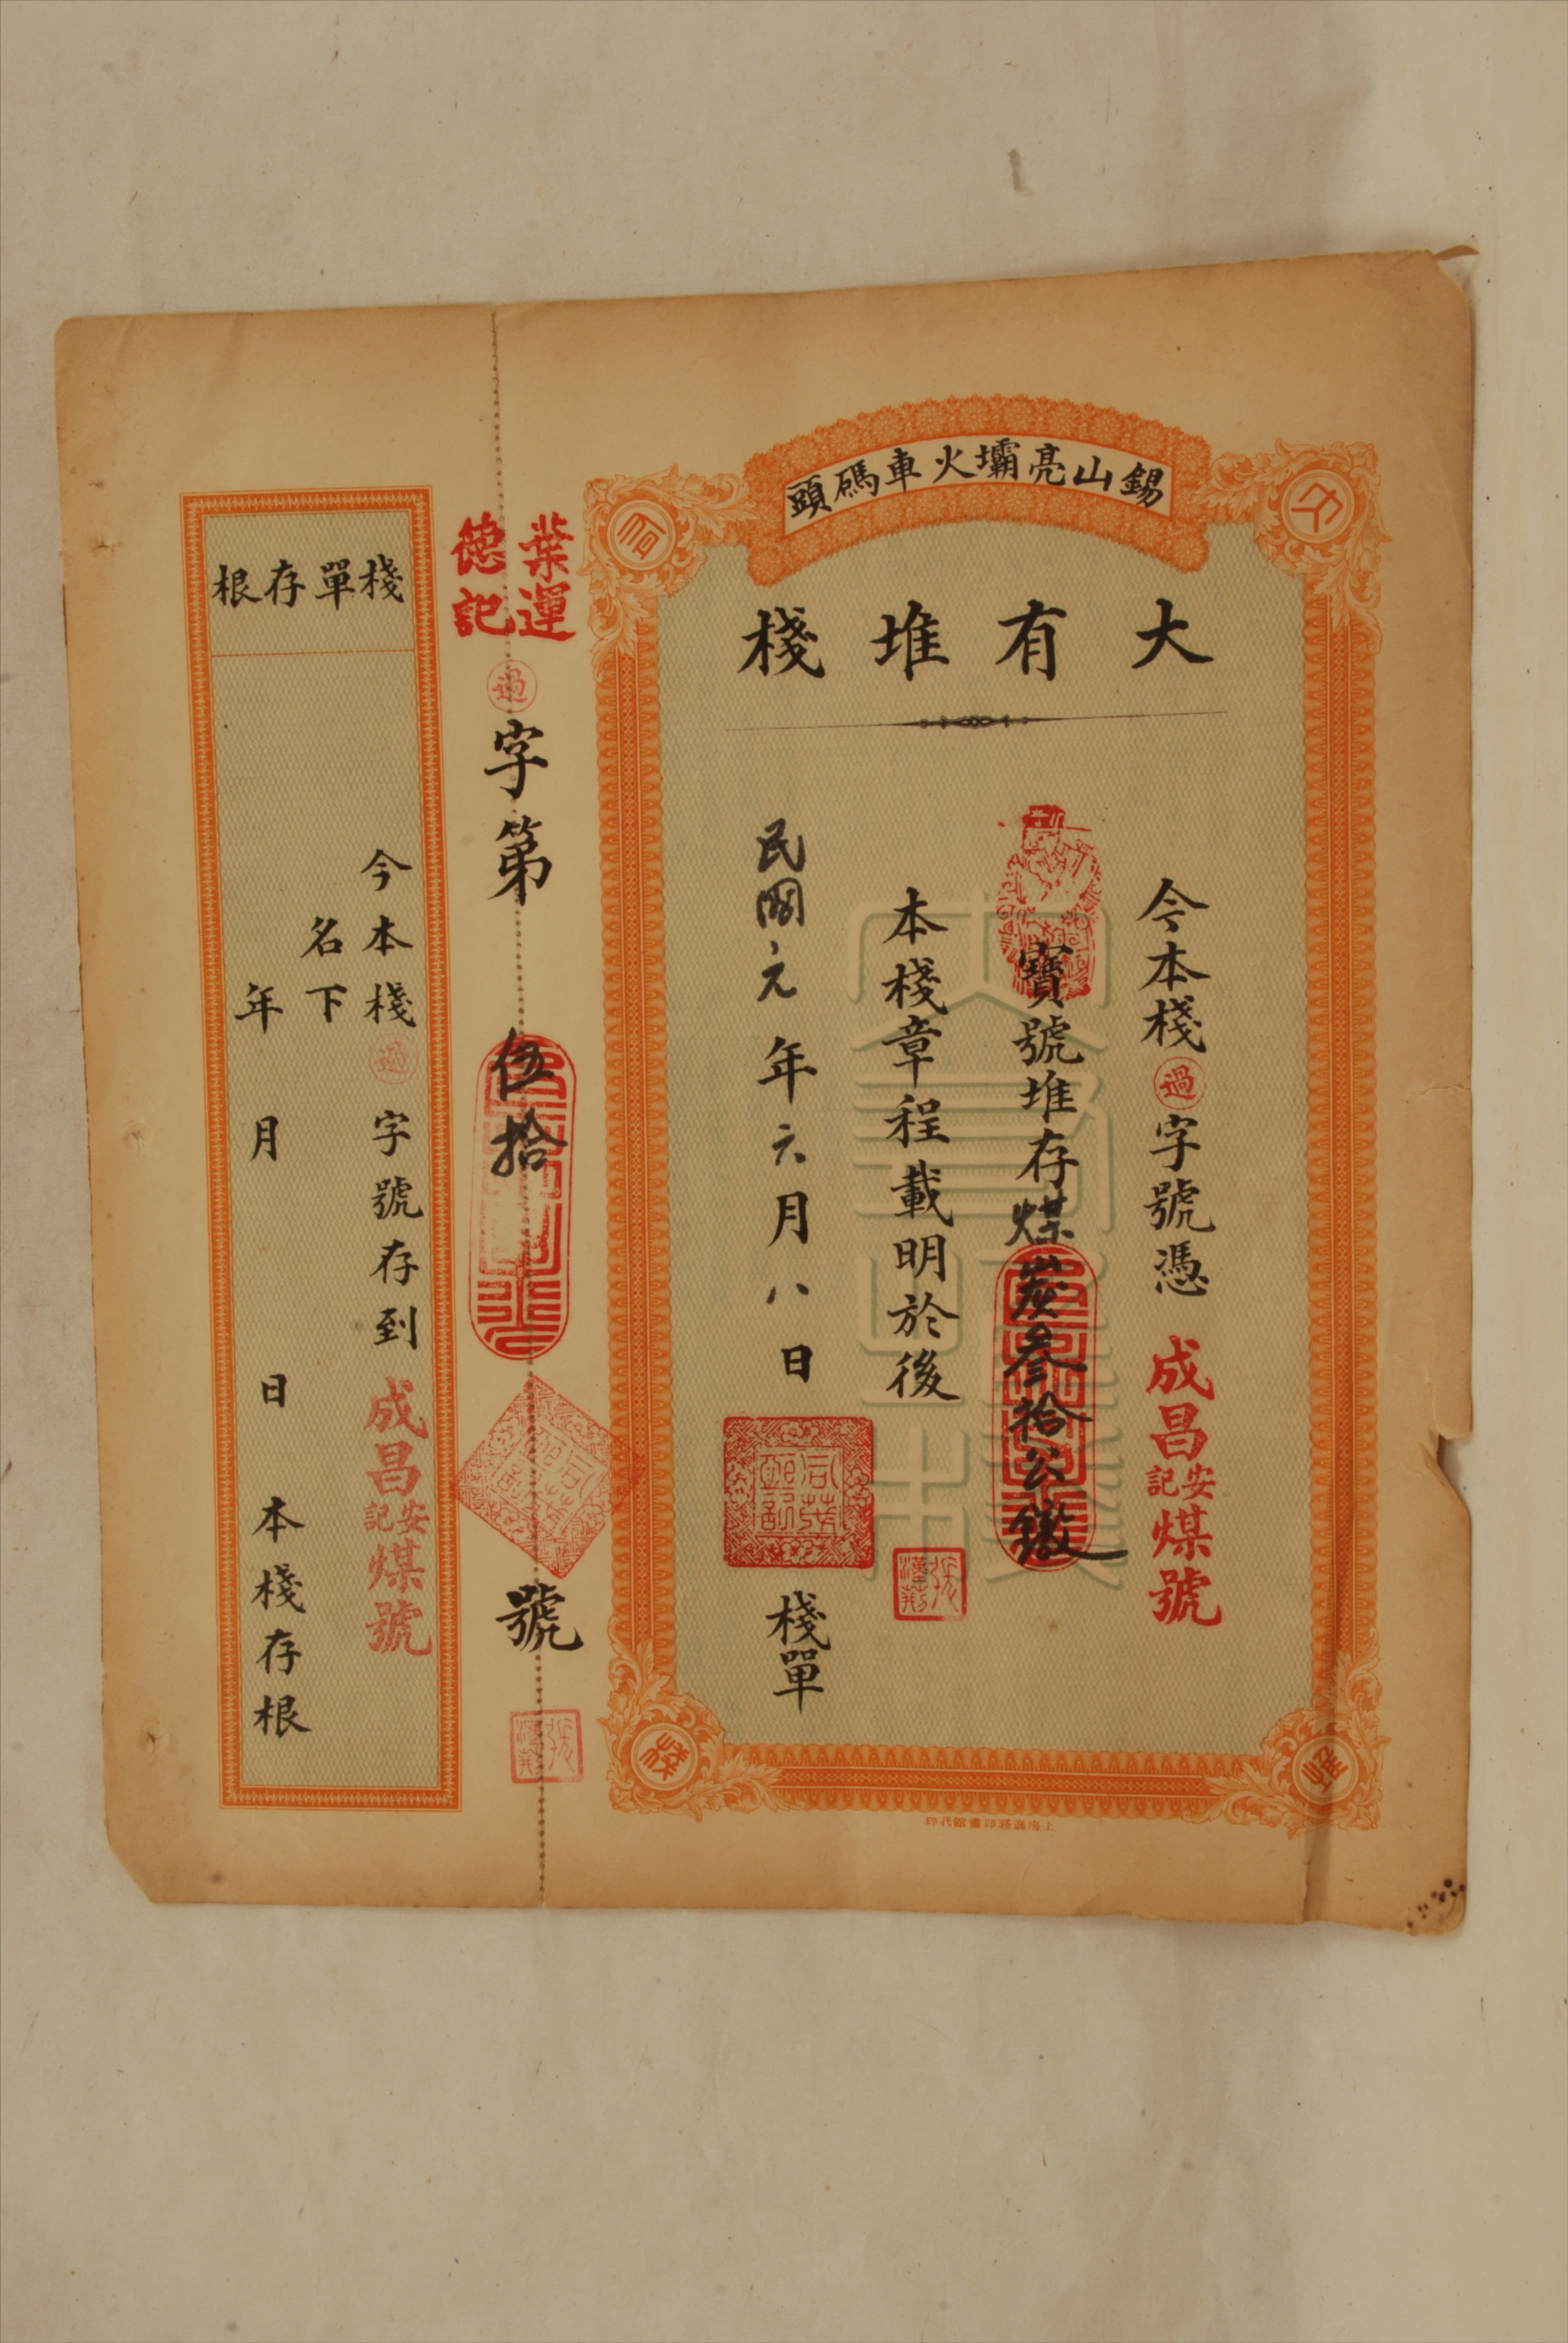 錫山亮壩火車碼頭
大有堆棧
今本棧過字號憑成昌安記煤號
寶號堆存煤炭叄拾公
本棧章程載明於後
民國元年六月八日 棧單
大
有
堆
棧
上海商務印書館代印
葉運
德記
過字第伍拾號
棧單存根
今本棧過字號存到成昌安記煤號
名下
年 月 日 本棧存根